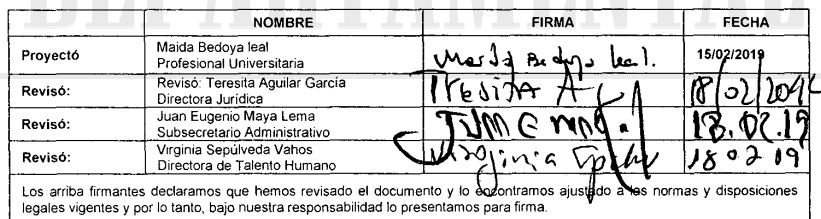 DEPARTAMENTAL
NOMBRE FIRMA FECHA
Proyectó Maida Bedoya leal Profesional Universitaria Maida Bedoya leal. 15/02/2019
Revisó: Revisó: Teresita Aguilar García Directora Jurídica Teresita A 18/02/2019
Revisó: Juan Eugenio Maya Lema Subsecretario Administrativo 18.02.19
Revisó: Virginia Sepúlveda Vahos Directora de Talento Humano Virginia 18 02 19
Los arriba firmantes declaramos que hemos revisado el documento y lo encontramos ajustado a las normas y disposiciones
legales vigentes y por lo tanto, bajo nuestra responsabilidad lo presentamos para firma.